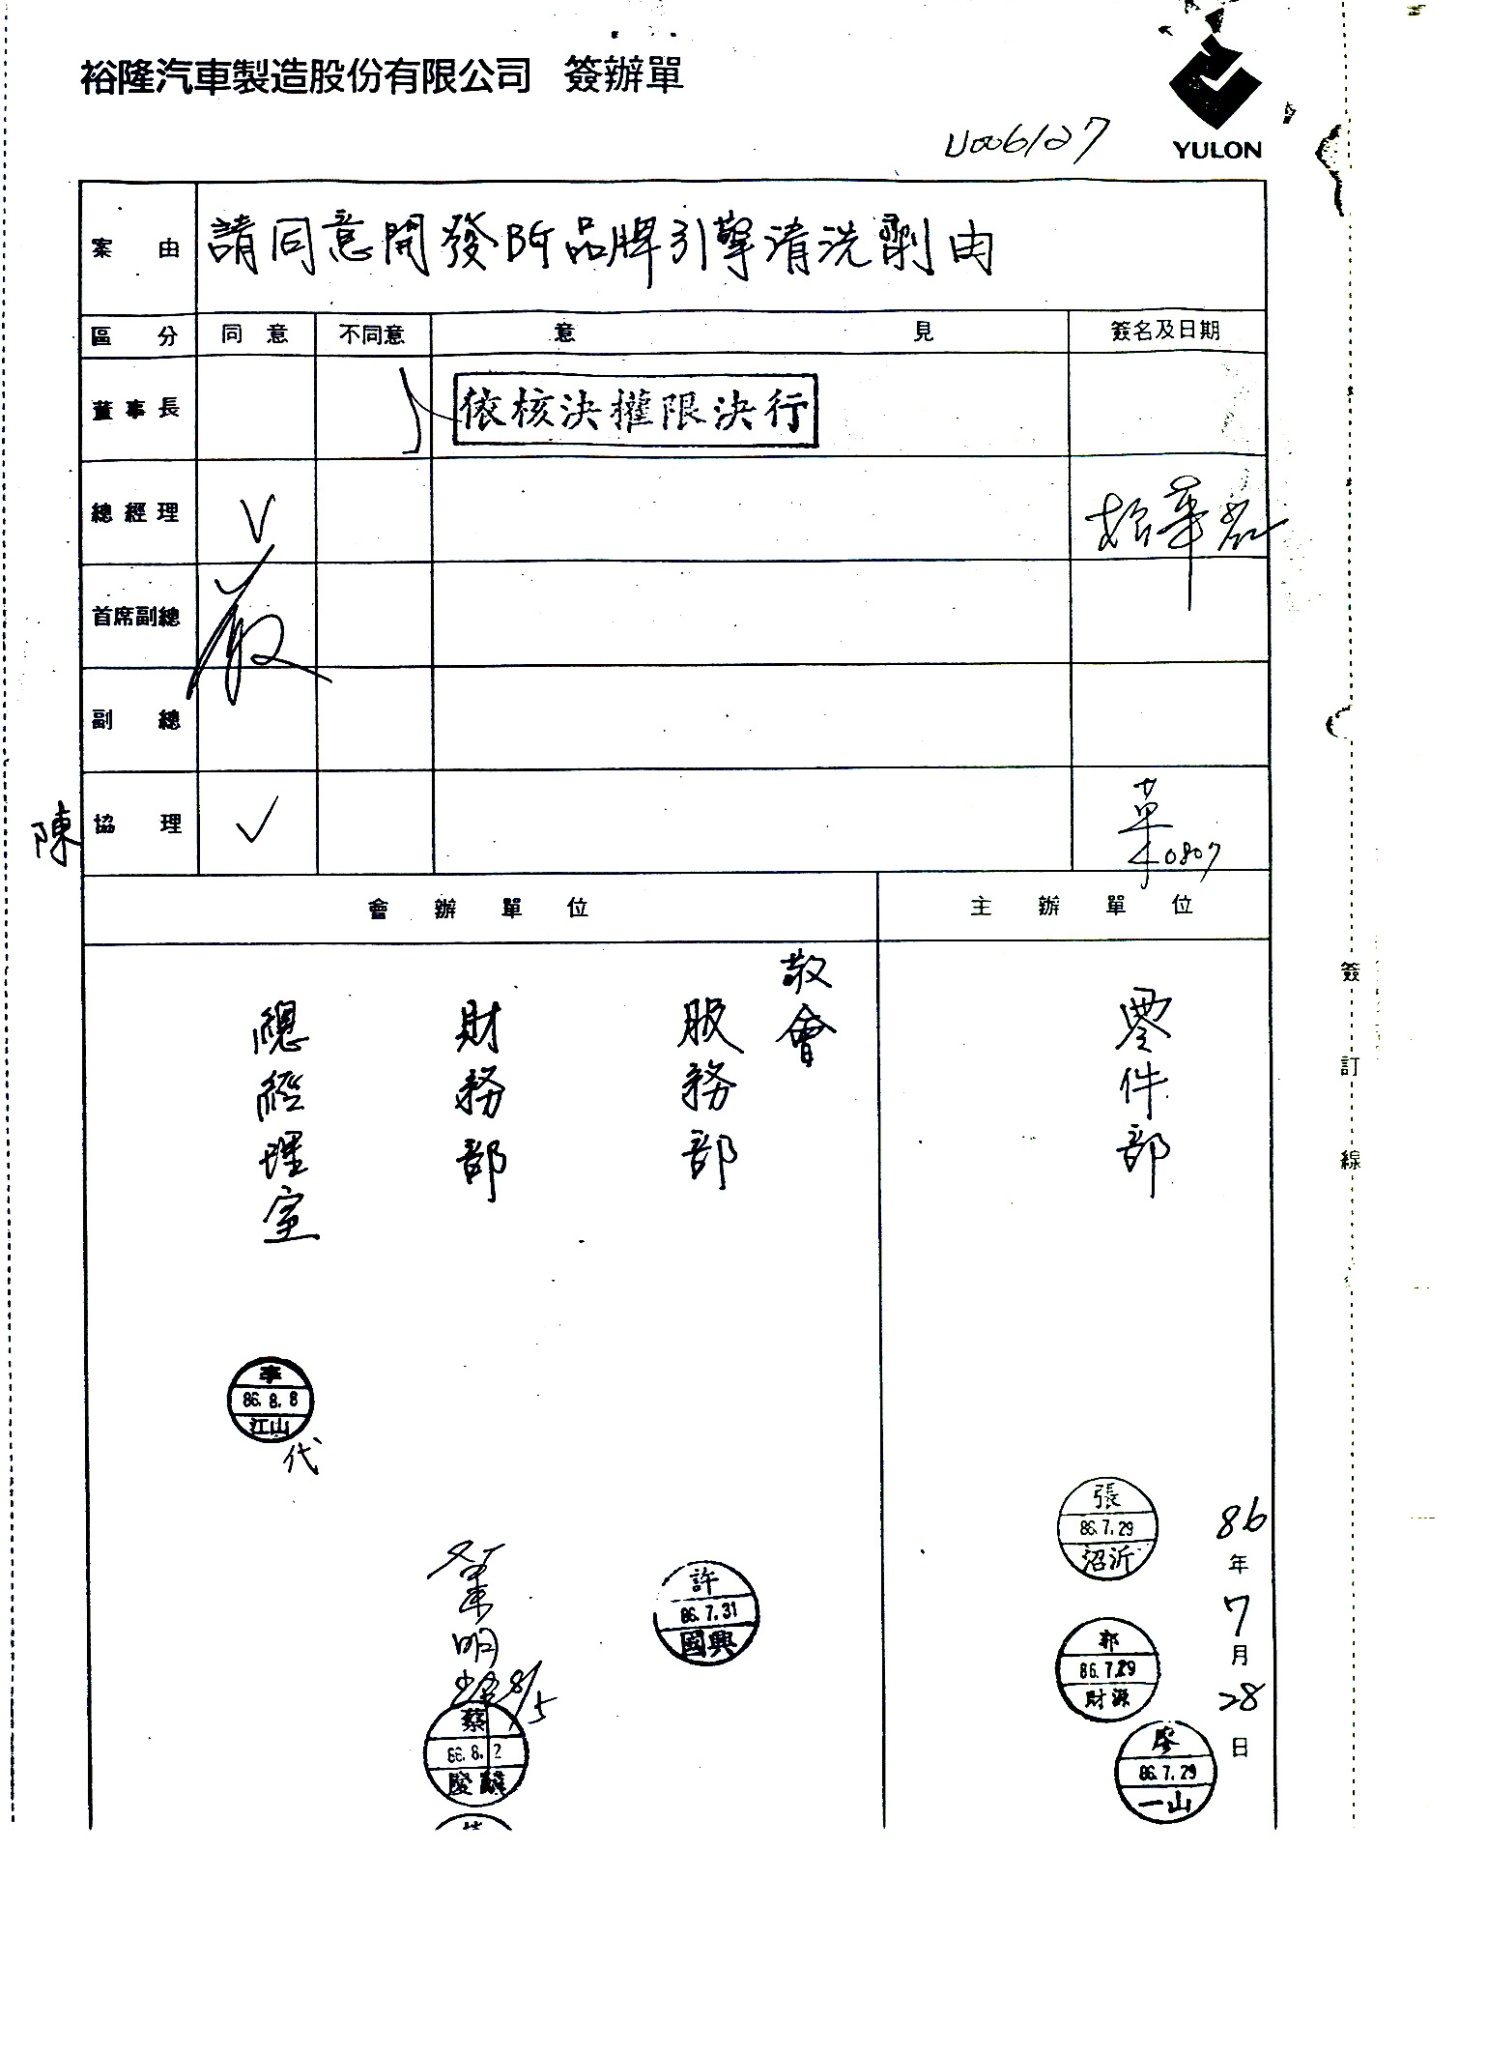 裕隆汽車製造股份有限公司 簽辦單
YULON
U006127
案由 請同意開發BG品牌引擎清洗劑由
區分 同意 不同意 意見 簽名及日期
董事長 依核決權限決行
總經理 V
首席副總
副總
陳 協理 V 0807
會辦單位 主辦單位
敬會
服務部
財務部
總經理室
零件部
李 86.8.8 江山
代
張 86.7.29 沼沂
許 86.7.31 國興
葉明 8/5
蔡 86.8.2
郭 86.7.29 財源
廖 86.7.29 一山
86年7月28日
簽訂線